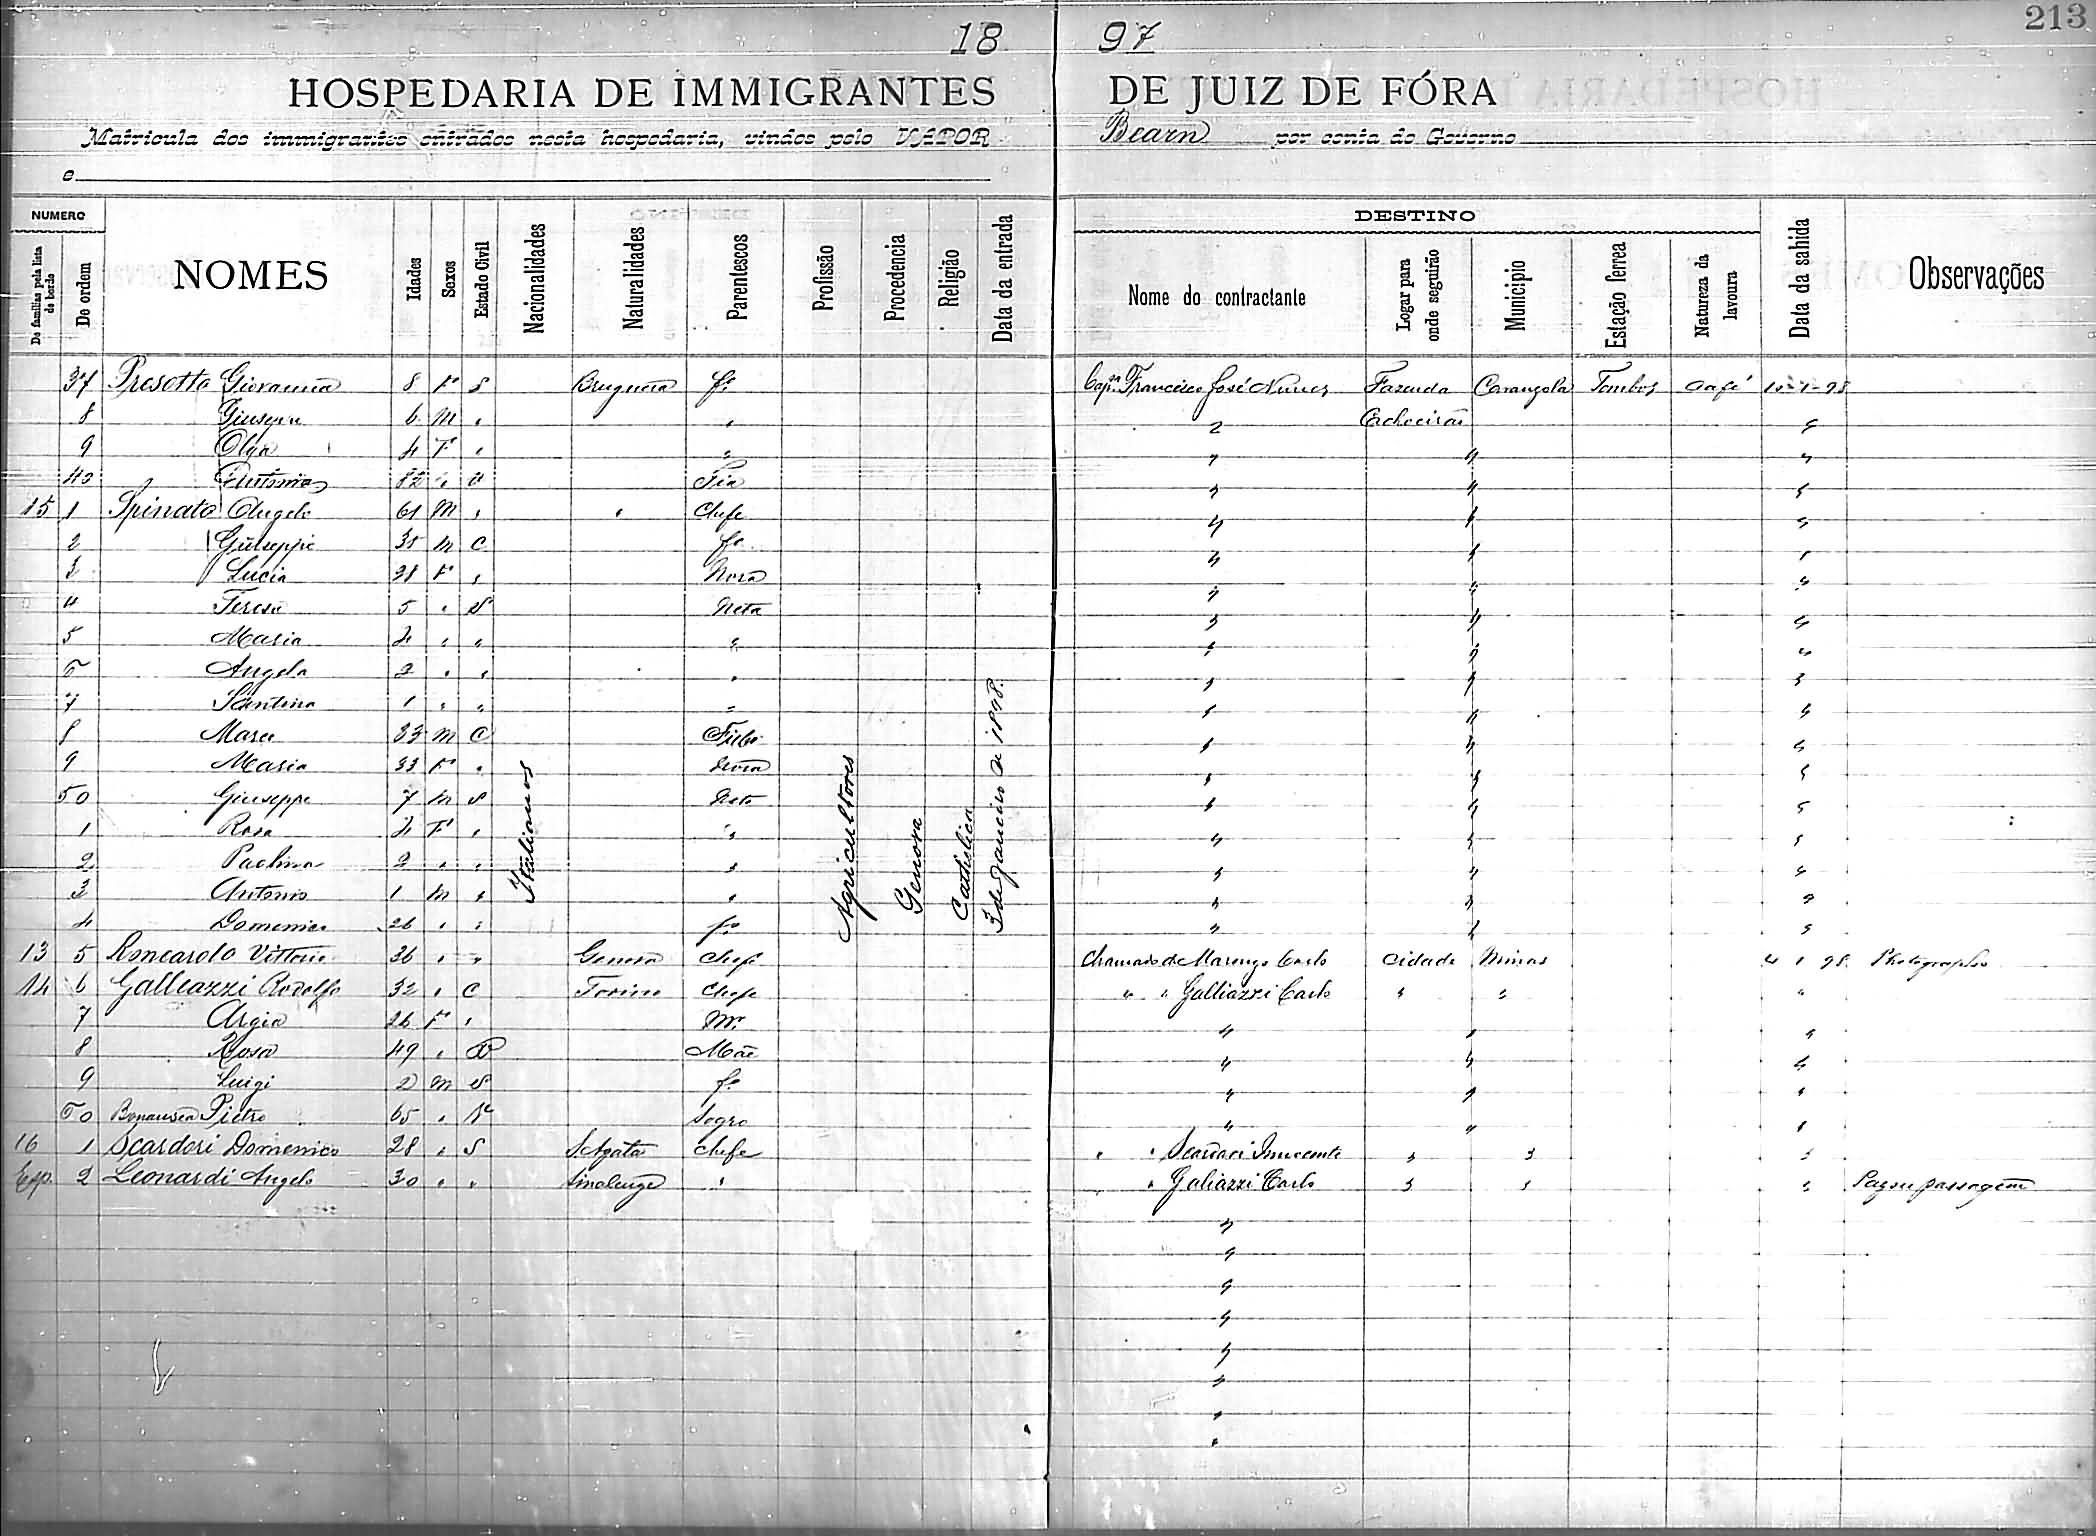 213
18 97
HOSPEDARIA DE IMMIGRANTES DE JUIZ DE FÓRA
Matricula dos immigrantes entrados nesta hospedaria, vindos pelo VAPOR Bearn por conta do Governo
e
NUMERO DESTINO
De familias pela lista de bordo De ordem NOMES Idades Sexos Estado Civil Nacionalidades Naturalidades Parentescos Profissão Procedencia Religião Data da entrada Nome do contractante Logar para onde seguirão Municipio Estação ferrea Natureza da lavoura Data da sahida Observações
37 Presotto Giovanna 8 F S Brugnera fª Capm Francisco José Nunes Fazenda Carangola Tombos Café
8 Giuseppe 6 M " " " Cachoeirão "
9 Olga 4 F " " " " "
40 Antonia 82 " V Tia " " "
15 1 Spinato Angelo 61 M " " Chefe " " "
2 Giuseppe 35 M C fº " " "
3 Lucia 28 F " Nora " " "
4 Teresa 5 " S Neta " " "
5 Maria 4 " " " " " "
6 Angela 2 " " " " " "
7 Santina 1 " " " " " "
8 Marco 33 M C Filho " " "
9 Maria 33 F " Nora " " "
50 Giuseppe 7 M S Neto " " "
1 Rosa 4 F " " " " "
2 Paolina 2 " " " " " "
3 Antonio 1 M " " " " "
4 Domenico 26 " " fº " " "
Italianos
Agricultores
Genova
Catholica
3 de Janeiro de 1898.
13 5 Roncarolo Vittorio 36 " " Genova Chefe Chamado de Marengo Carlo Cidade Minas 4 1 98 Photographo
14 6 Galleazzi Rodolfo 32 " C Torino Chefe " " Galliazzi Carlo " " "
7 Argia 26 F " Mr. " " "
8 Rosa 49 " V Mãe " " "
9 Luigi 2 M S fº " " "
60 Pietro 65 " V Sogro " " "
16 1 Scardori Domenico 28 " S S. Agata Chefe " " Innocente " " "
Esp. 2 Leonardi Angelo 30 " " " " Galiazzi Carlo " " " Pagou passagem
"
"
"
"
"
"
"
"